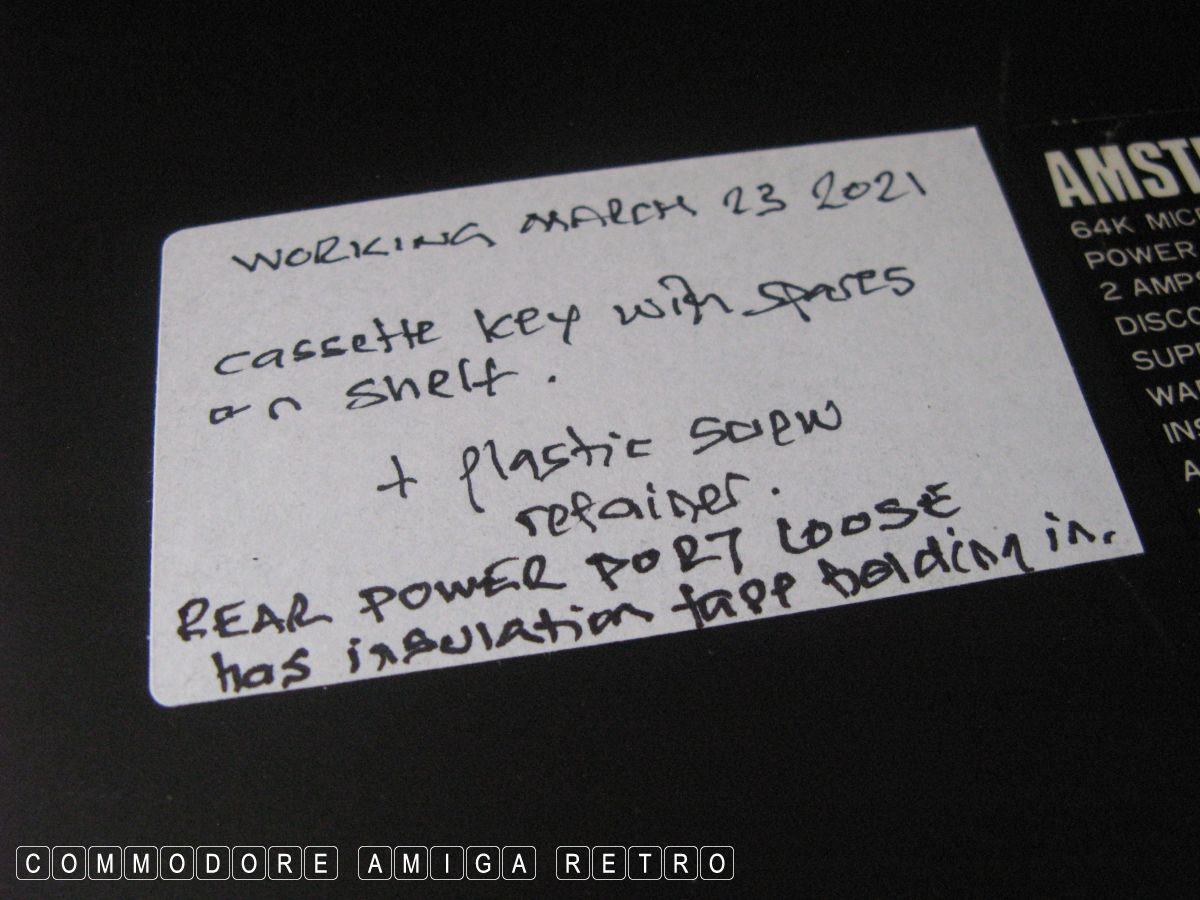 WORKING MARCH 23 2021
cassette key with spares
on shelf.
+ plastic screw
retainer.
REAR POWER PORT LOOSE
has insulation tape holding in.
AMST
64K MIC
POWER
2 AMPS
DISCO
SUPP
WA
INS
A
COMMODORE AMIGA RETRO